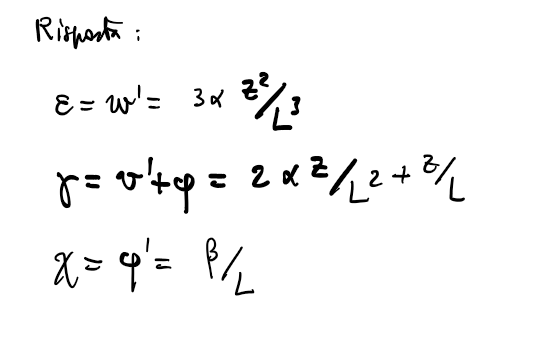 Risposta :
ε = w' = 3α z²/L³
γ = v'+φ = 2 α z/L² + z/L
χ = φ' = β/L